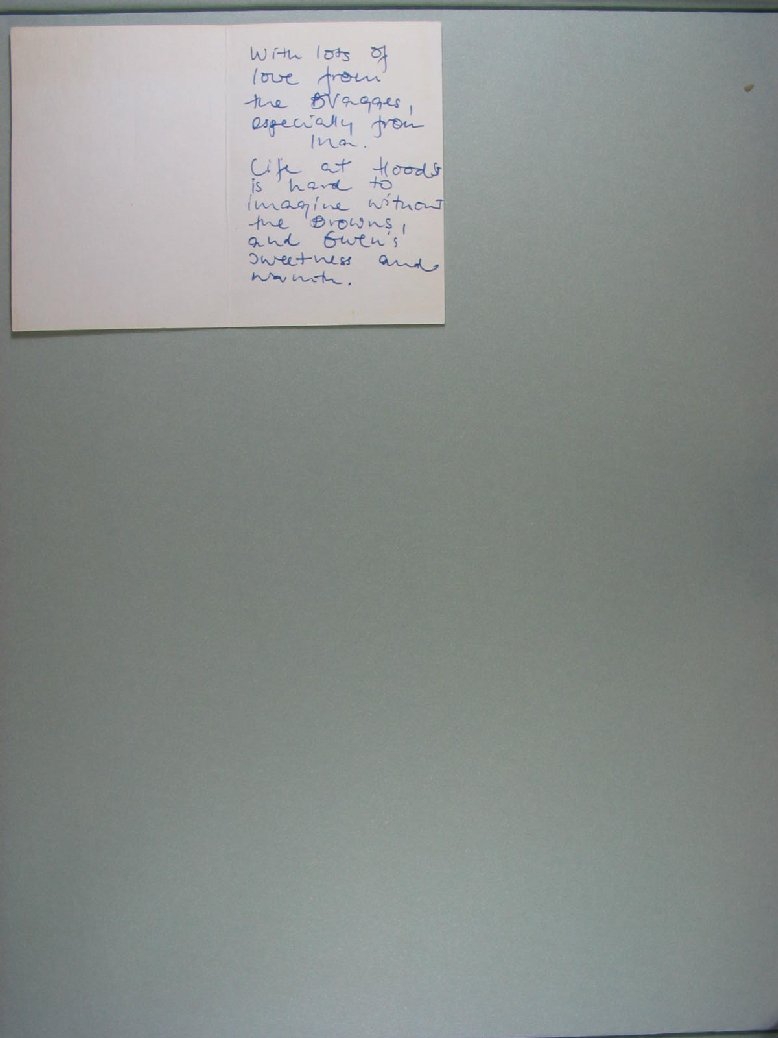 With lots of
love from
the Bragges,
especially from
Ina.
Life at Hoods
is hard to
imagine without
the Browns,
and Gwen's
sweetness and
warmth.